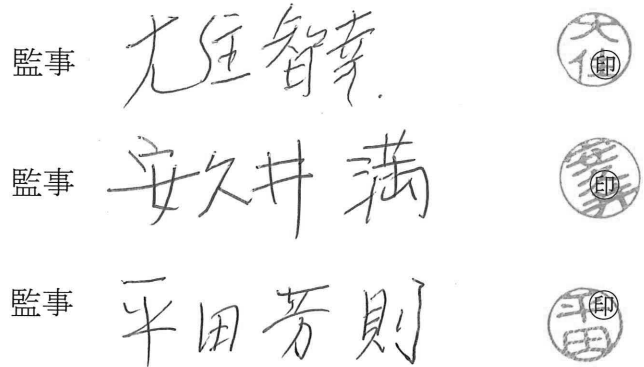 監事 大住智幸 ㊞
監事 安久井満 ㊞
監事 平田芳則 ㊞